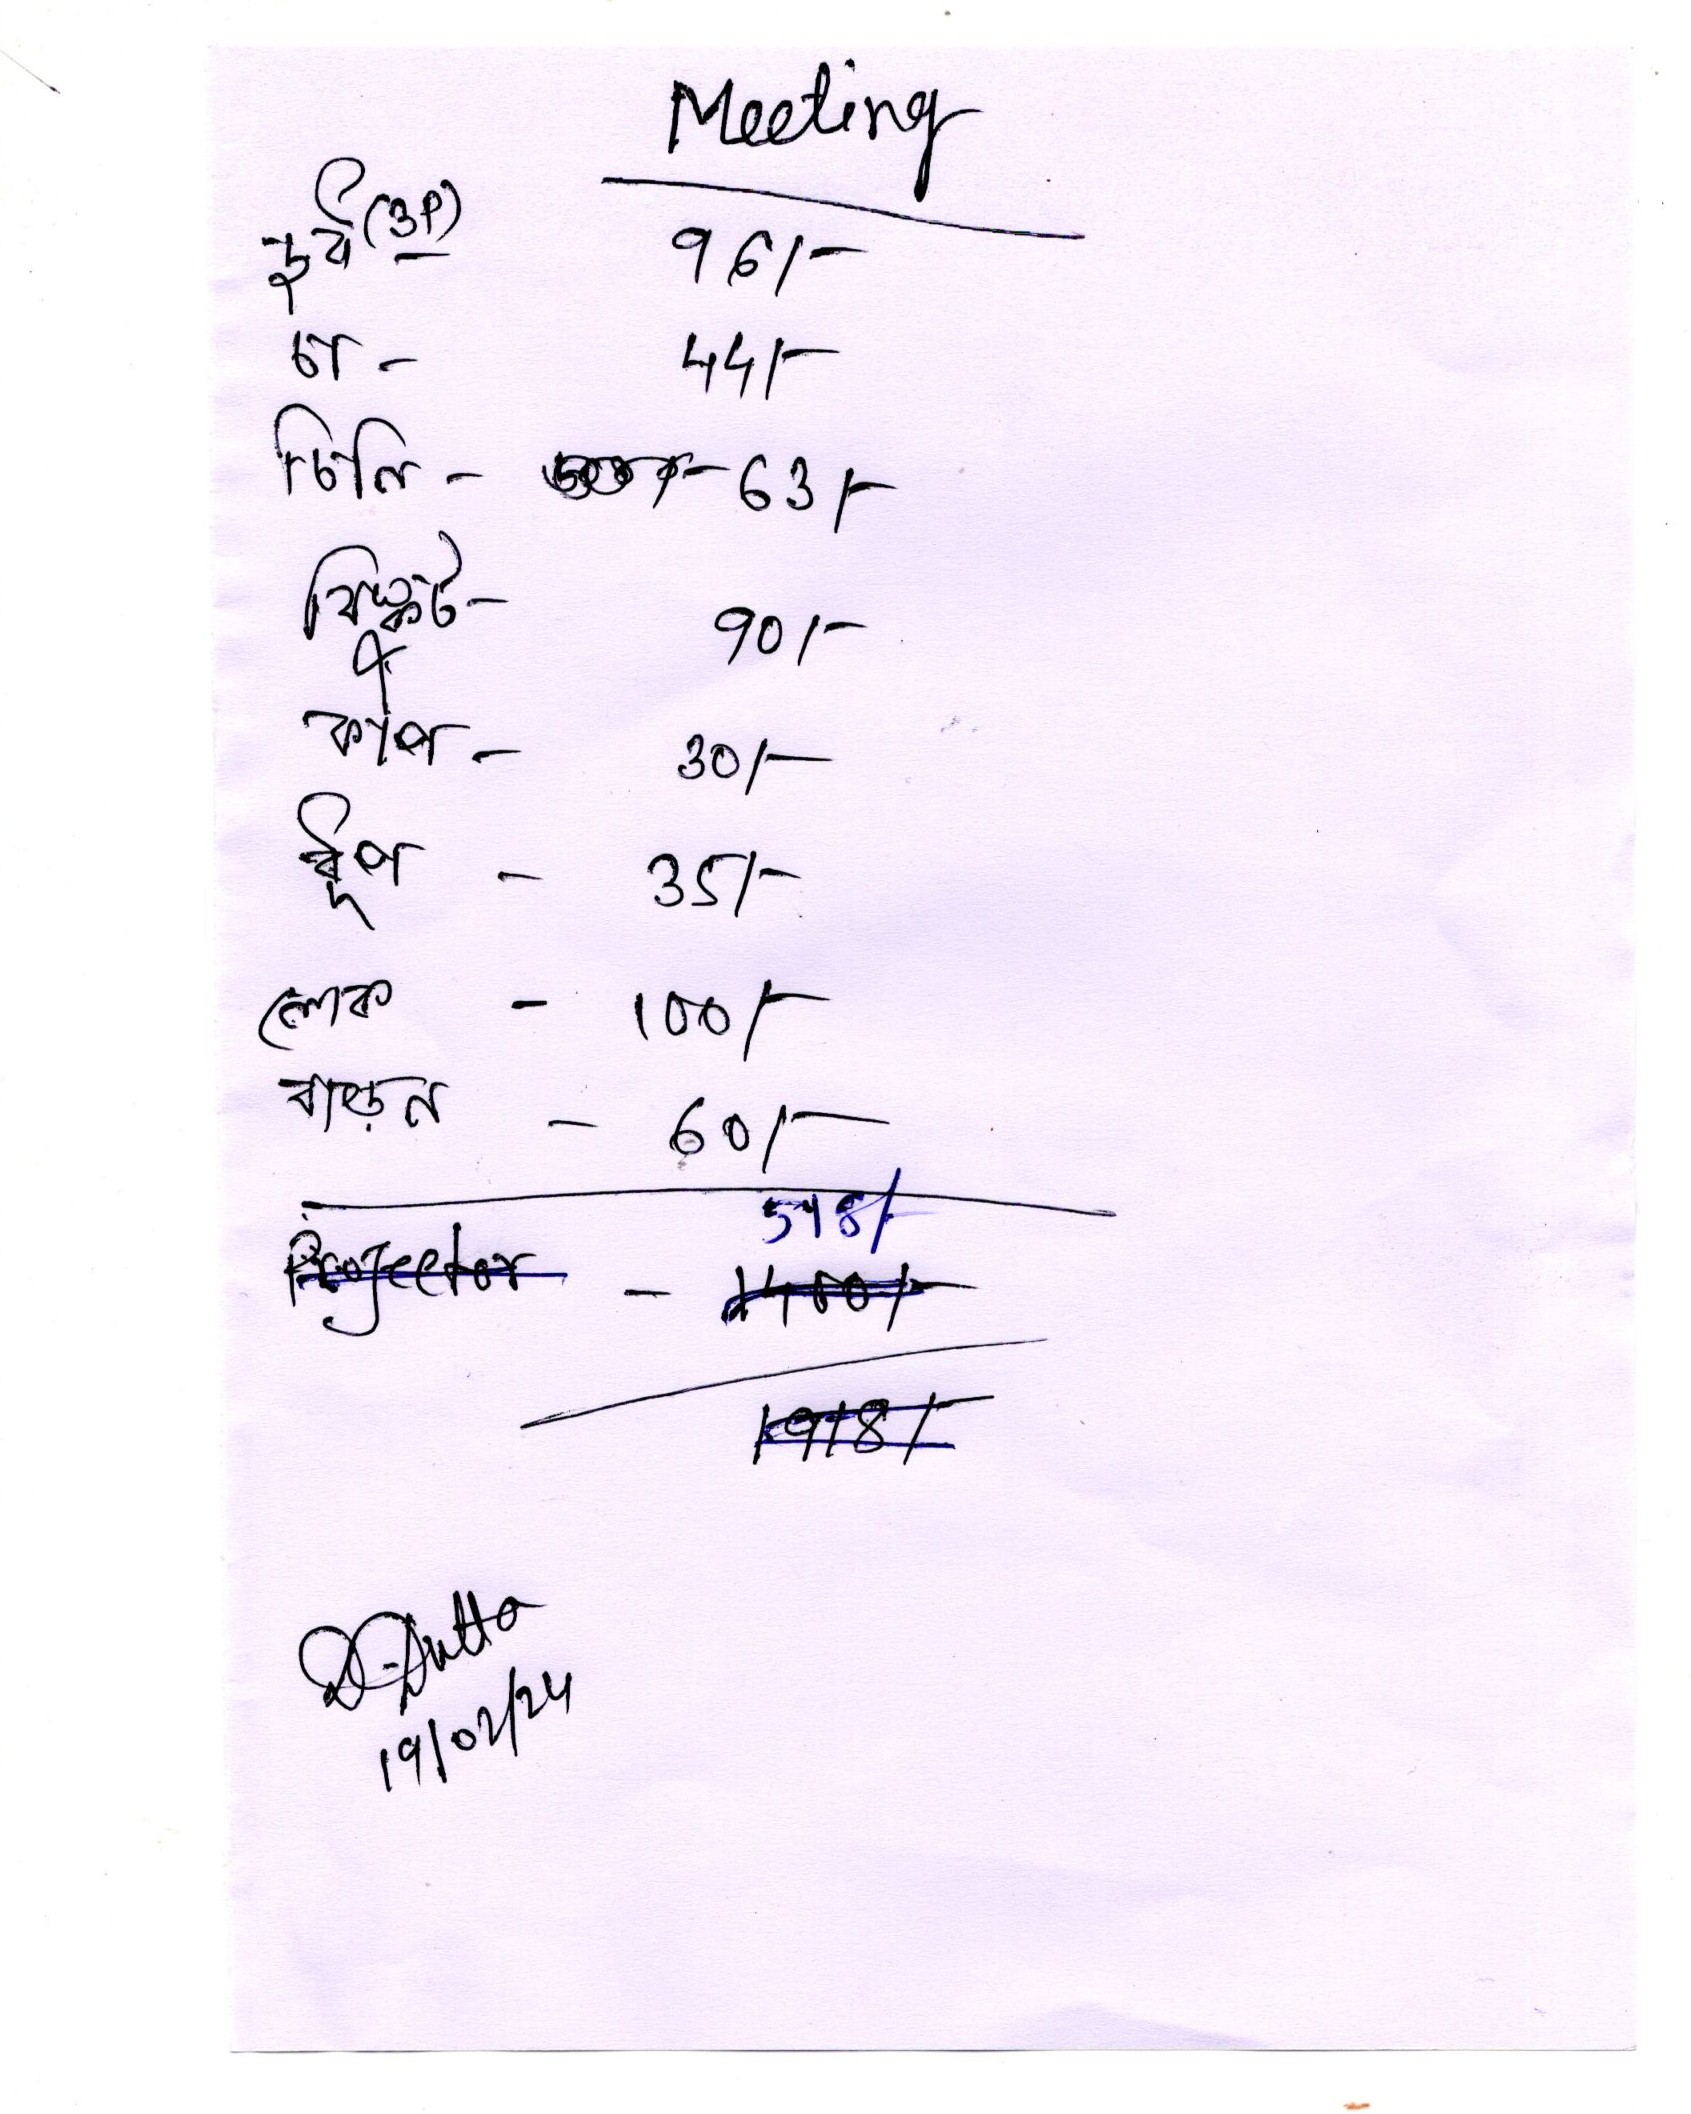 Meeting
দুধ (3P) - 96/-
চা - 44/-
চিনি - 63/-
বিস্কুট - 90/-
কাপ - 30/-
ধূপ - 35/-
লোক - 100/-
60/-
518/-
Projector - 1400/-
1918/-
D. Dutta
19/02/24